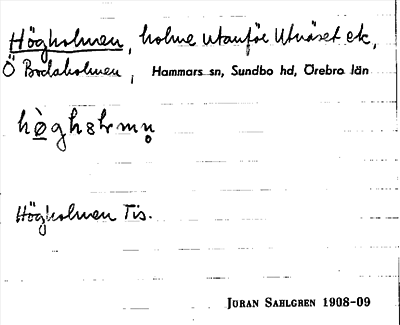 Högholmen, holme utanför Utnäset ek,
Ö Bodaholmen, Hammars sn, Sundbo hd, Örebro län
Högholmen Tis.
JÖRAN SAHLGREN 1908-09